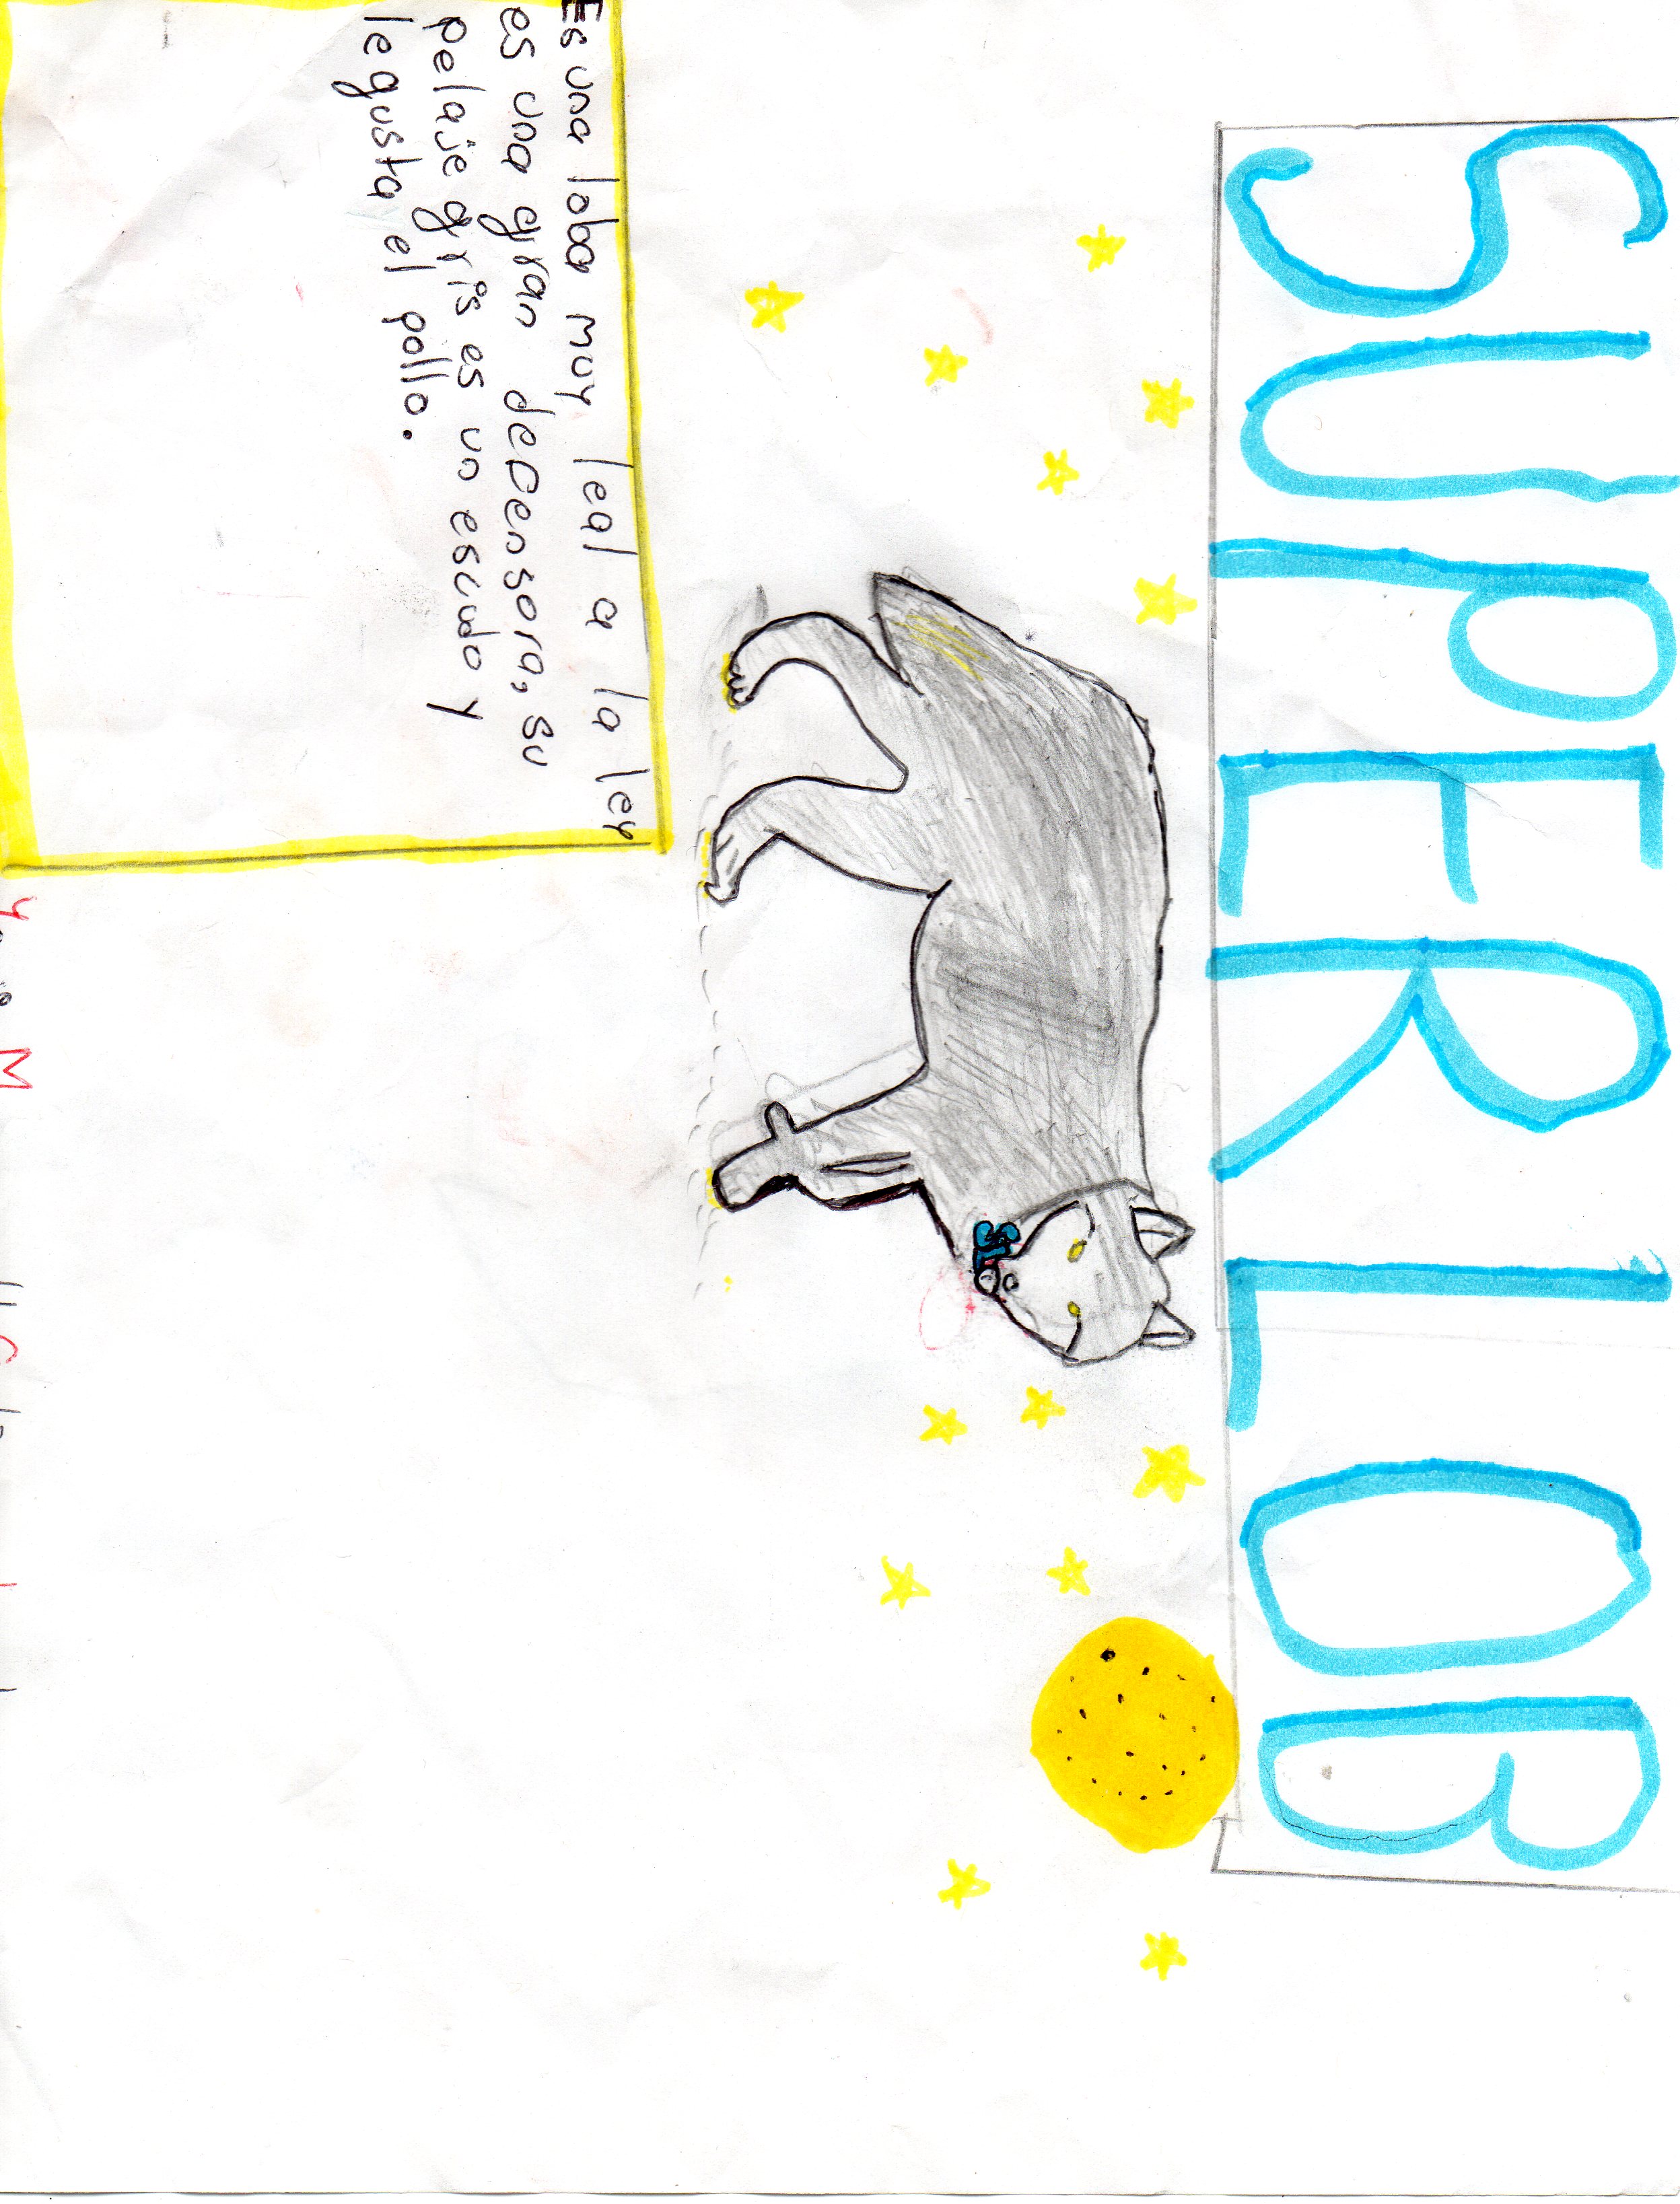 SUPERLOB
SL
Es una loba muy leal a la ley
es una gran defensora, su
pelaje gris es un escudo y
le gusta el pollo.